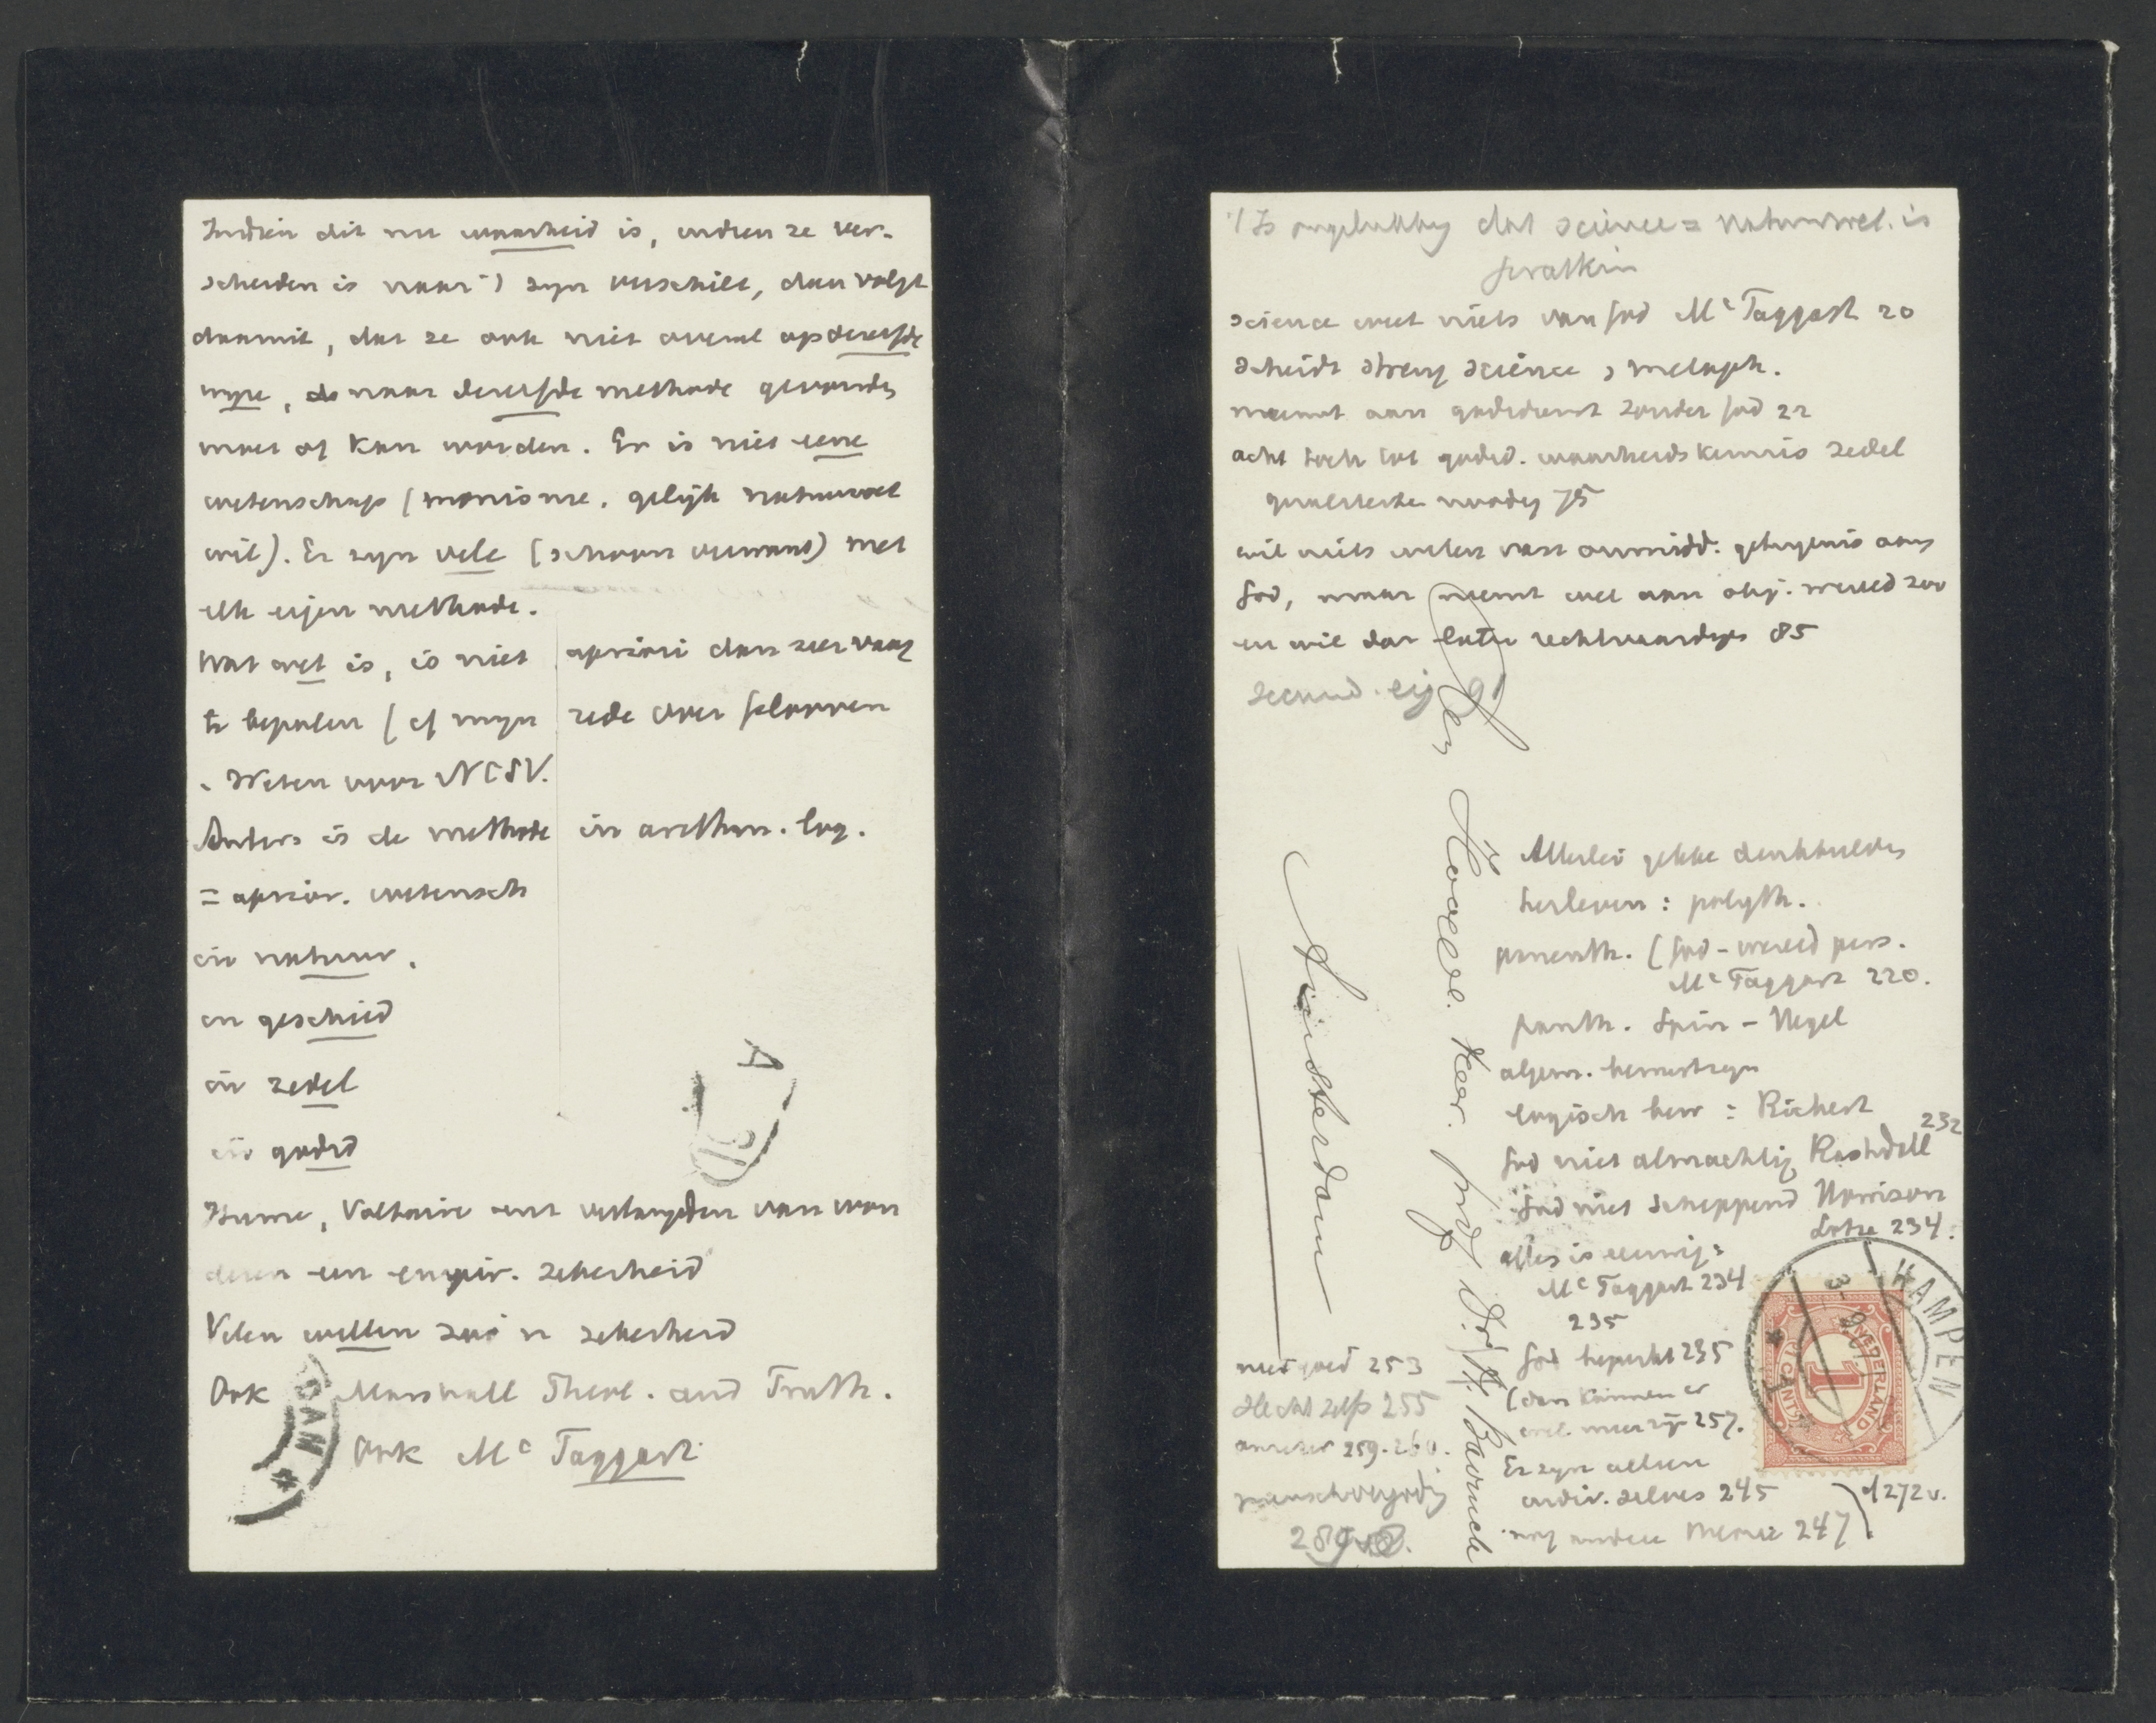 Indien dit nu waarheid is, indien ze ver-
scheiden is naar 't zyn verschilt, dan volgt
daaruit, dat ze ook niet overal op dezelfde
wyze, naar dezelfde methode gevonden
moet of kan worden. Er is niet eene
wetenschap (monisme, gelijk natuurwet
wil). Er zyn vele (schoon verwant) met
elk eigen methode.
Wat wet is, is niet apriori dan zeer vaag
te bepalen (cf myn rede over gelooven
. Weten voor NCSV.
Anders is de methode in arithm. log.
= aprior. wetensch
in natuur.
in geschied
in zedel
in godsd
Hume, Voltaire enz verlangden van won
deren een empir. zekerheid
Velen willen zoo'n zekerheid
Ook Marshall Theol. and Truth.
Ook Mc Taggart
DAM *
A
science weet niets van God Mc Taggart 20
scheidt streng science , metaph.
neemt aan godsdienst zonder God 22
acht toch tot godsd. waarheidskennis zedel
noodig 75
wil niets weten van onmidd. getuigenis aang
God, maar neemt wel aan obj. wereld zoo
en wil dat later rechtvaardigen 85
Den Hooggel. Heer. Prof. Dr. H. Bavinck
Amsterdam
Allerlei gekke denkbeelden
herleven: polyth.
panenth. (God-wereld pers.
Mc Taggart 220.
panth. Spin - Hegel
algem. bewustzyn
logisch bew: Rickert
232
God niet almachtig Rashdall
God niet scheppend Howison
Lotze 234.
alles is eeuwig:
Mc Taggart 234
235
God beperkt 235
(dan kunnen er
wel meer zijn 257.
Er zyn alleen
indiv. selves 245
nog andere 247
272 v.
niet goed 253
slecht zelfs 255
259-260.
menschvergodig
KAMPEN
NEDERLAND
1
1 CENT